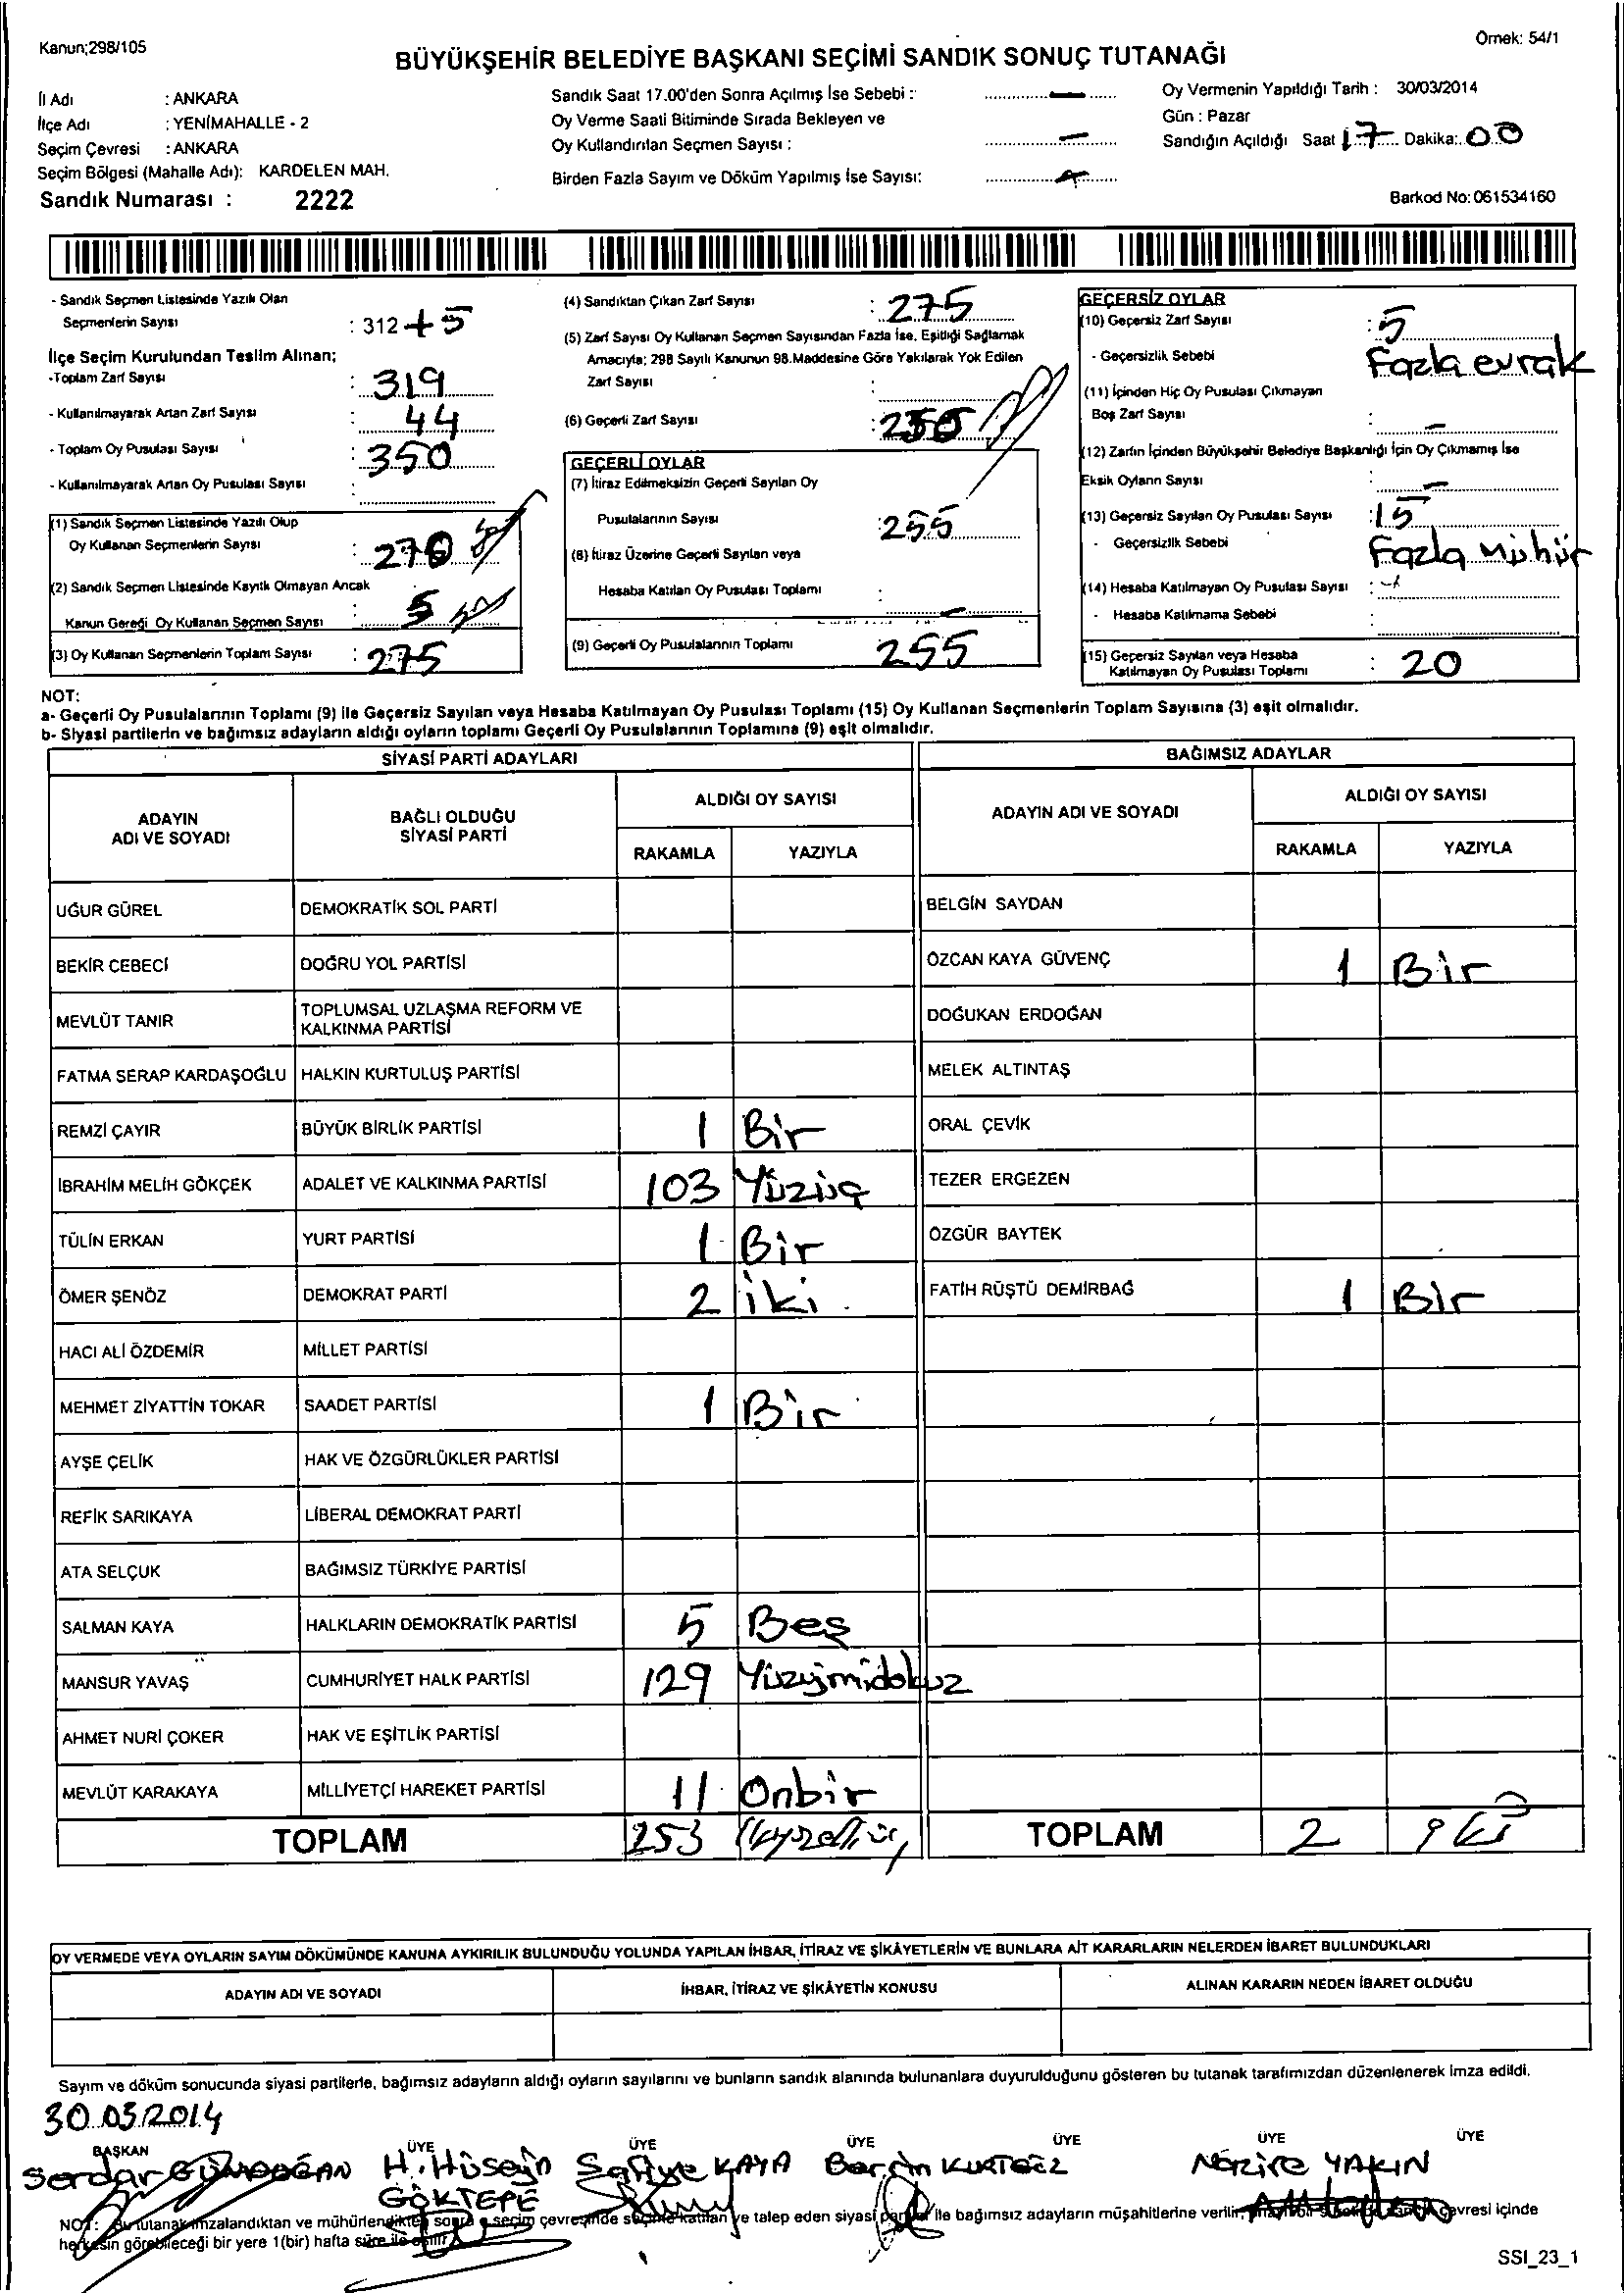 Kanun;298/105
Örnek: 54/1
BÜYÜKŞEHİR BELEDİYE BAŞKANI SEÇİMİ SANDIK SONUÇ TUTANAĞI
İl Adı : ANKARA
İlçe Adı : YENİMAHALLE - 2
Seçim Çevresi : ANKARA
Seçim Bölgesi (Mahalle Adı): KARDELEN MAH.
Sandık Numarası : 2222
Sandık Saat 17.00'den Sonra Açılmış İse Sebebi : —
Oy Verme Saati Bitiminde Sırada Bekleyen ve
Oy Kullandırılan Seçmen Sayısı : —
Birden Fazla Sayım ve Döküm Yapılmış İse Sayısı:
Oy Vermenin Yapıldığı Tarih : 30/03/2014
Gün : Pazar
Sandığın Açıldığı Saat 17 Dakika: 00
Barkod No: 061534160
- Sandık Seçmen Listesinde Yazılı Olan
Seçmenlerin Sayısı : 312 + 5
İlçe Seçim Kurulundan Teslim Alınan;
-Toplam Zarf Sayısı : 319
- Kullanılmayarak Artan Zarf Sayısı : 44
- Toplam Oy Pusulası Sayısı : 350
- Kullanılmayarak Artan Oy Pusulası Sayısı :
(1) Sandık Seçmen Listesinde Yazılı Olup
Oy Kullanan Seçmenlerin Sayısı : 270
(2) Sandık Seçmen Listesinde Kayıtlı Olmayan Ancak
Kanun Gereği Oy Kullanan Seçmen Sayısı : 5
(3) Oy Kullanan Seçmenlerin Toplam Sayısı : 275
(4) Sandıktan Çıkan Zarf Sayısı : 275
(5) Zarf Sayısı Oy Kullanan Seçmen Sayısından Fazla İse, Eşitliği Sağlamak
Amacıyla; 298 Sayılı Kanunun 98.Maddesine Göre Yakılarak Yok Edilen
Zarf Sayısı :
(6) Geçerli Zarf Sayısı :
GEÇERLİ OYLAR
(7) İtiraz Edilmeksizin Geçerli Sayılan Oy
Pusulalarının Sayısı : 255
(8) İtiraz Üzerine Geçerli Sayılan veya
Hesaba Katılan Oy Pusulası Toplamı : —
(9) Geçerli Oy Pusulalarının Toplamı : 255
GEÇERSİZ OYLAR
(10) Geçersiz Zarf Sayısı : 5
- Geçersizlik Sebebi Fazla evrak
(11) İçinden Hiç Oy Pusulası Çıkmayan
Boş Zarf Sayısı : —
(12) Zarfın İçinden Büyükşehir Belediye Başkanlığı İçin Oy Çıkmamış İse
Eksik Oyların Sayısı : —
(13) Geçersiz Sayılan Oy Pusulası Sayısı : 15
- Geçersizlik Sebebi Fazla Mühür
(14) Hesaba Katılmayan Oy Pusulası Sayısı :
- Hesaba Katılmama Sebebi :
(15) Geçersiz Sayılan veya Hesaba
Katılmayan Oy Pusulası Toplamı : 20
NOT:
a- Geçerli Oy Pusulalarının Toplamı (9) ile Geçersiz Sayılan veya Hesaba Katılmayan Oy Pusulası Toplamı (15) Oy Kullanan Seçmenlerin Toplam Sayısına (3) eşit olmalıdır.
b- Siyasi partilerin ve bağımsız adayların aldığı oyların toplamı Geçerli Oy Pusulalarının Toplamına (9) eşit olmalıdır.
SİYASİ PARTİ ADAYLARI
ADAYIN ADI VE SOYADI BAĞLI OLDUĞU SİYASİ PARTİ ALDIĞI OY SAYISI
RAKAMLA YAZIYLA
UĞUR GÜREL DEMOKRATİK SOL PARTİ
BEKİR CEBECİ DOĞRU YOL PARTİSİ
MEVLÜT TANIR TOPLUMSAL UZLAŞMA REFORM VE KALKINMA PARTİSİ
FATMA SERAP KARDAŞOĞLU HALKIN KURTULUŞ PARTİSİ
REMZİ ÇAYIR BÜYÜK BİRLİK PARTİSİ 1 Bir
İBRAHİM MELİH GÖKÇEK ADALET VE KALKINMA PARTİSİ 103 Yüzüç
TÜLİN ERKAN YURT PARTİSİ 1 Bir
ÖMER ŞENÖZ DEMOKRAT PARTİ 2 iki
HACI ALİ ÖZDEMİR MİLLET PARTİSİ
MEHMET ZİYATTİN TOKAR SAADET PARTİSİ 1 Bir
AYŞE ÇELİK HAK VE ÖZGÜRLÜKLER PARTİSİ
REFİK SARIKAYA LİBERAL DEMOKRAT PARTİ
ATA SELÇUK BAĞIMSIZ TÜRKİYE PARTİSİ
SALMAN KAYA HALKLARIN DEMOKRATİK PARTİSİ 5 Beş
MANSUR YAVAŞ CUMHURİYET HALK PARTİSİ 129 Yüzyimidokuz
AHMET NURİ ÇOKER HAK VE EŞİTLİK PARTİSİ
MEVLÜT KARAKAYA MİLLİYETÇİ HAREKET PARTİSİ 11 Onbir
TOPLAM 253
BAĞIMSIZ ADAYLAR
ADAYIN ADI VE SOYADI ALDIĞI OY SAYISI
RAKAMLA YAZIYLA
BELGİN SAYDAN
ÖZCAN KAYA GÜVENÇ 1 Bir
DOĞUKAN ERDOĞAN
MELEK ALTINTAŞ
ORAL ÇEVİK
TEZER ERGEZEN
ÖZGÜR BAYTEK
FATİH RÜŞTÜ DEMİRBAĞ 1 Bir
TOPLAM 2 iki
OY VERMEDE VEYA OYLARIN SAYIM DÖKÜMÜNDE KANUNA AYKIRILIK BULUNDUĞU YOLUNDA YAPILAN İHBAR, İTİRAZ VE ŞİKÂYETLERİN VE BUNLARA AİT KARARLARIN NELERDEN İBARET BULUNDUKLARI
ADAYIN ADI VE SOYADI İHBAR, İTİRAZ VE ŞİKÂYETİN KONUSU ALINAN KARARIN NEDEN İBARET OLDUĞU
Sayım ve döküm sonucunda siyasi partilerle, bağımsız adayların aldığı oyların sayılarını ve bunların sandık alanında bulunanlara duyurulduğunu gösteren bu tutanak tarafımızdan düzenlenerek imza edildi.
30.03.2014
BAŞKAN ÜYE ÜYE ÜYE ÜYE ÜYE ÜYE
Serdar GÜNDOĞAN H. Hüseyin Safiye KAYA Nazire YAKIN
GÖKTEPE
NOT: Bu tutanak imzalandıktan ve mühürlendikten sonra o seçim çevresinde seçime katılan ve talep eden siyasi partiler ile bağımsız adayların müşahitlerine verilir, çevresi içinde
herkesin görebileceği bir yere 1(bir) hafta süre ile asılır.
SSI_23_1